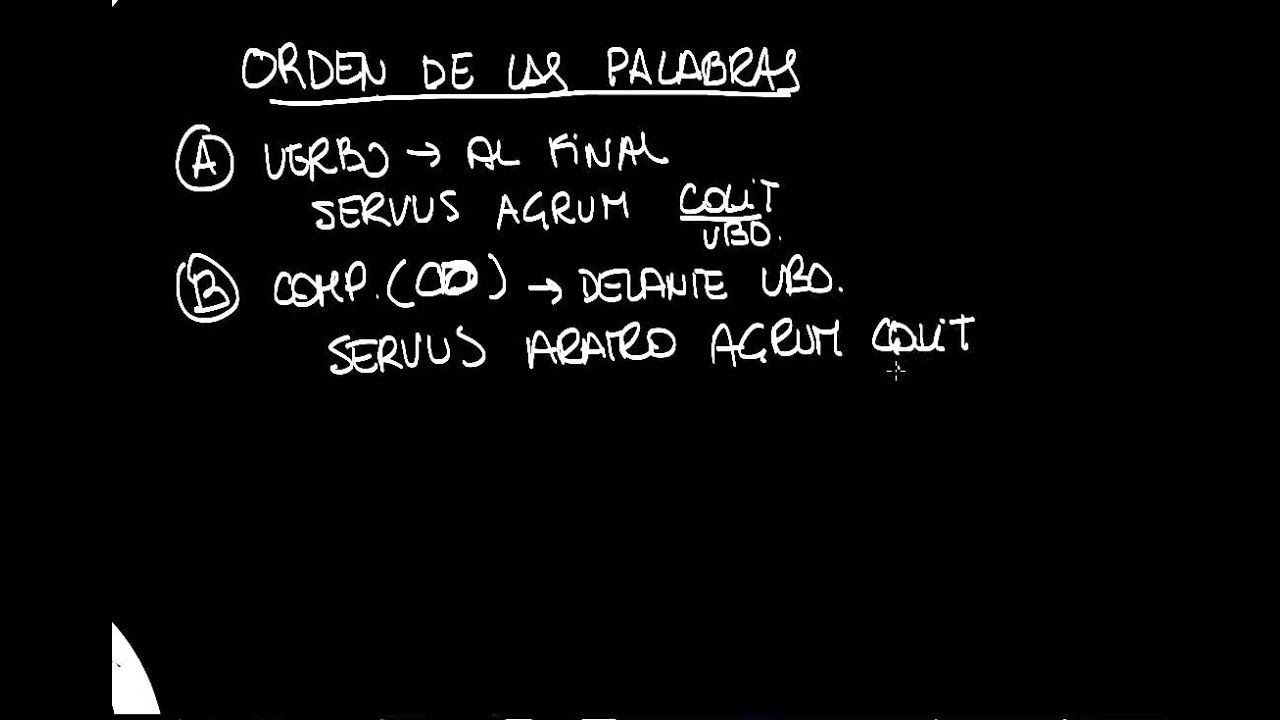 ORDEN DE LAS PALABRAS
A VERBO → AL FINAL
SERVUS AGRUM COLIT
VBO.
B COMP. (CD) → DELANTE VBO.
SERVUS ARATRO AGRUM COLIT